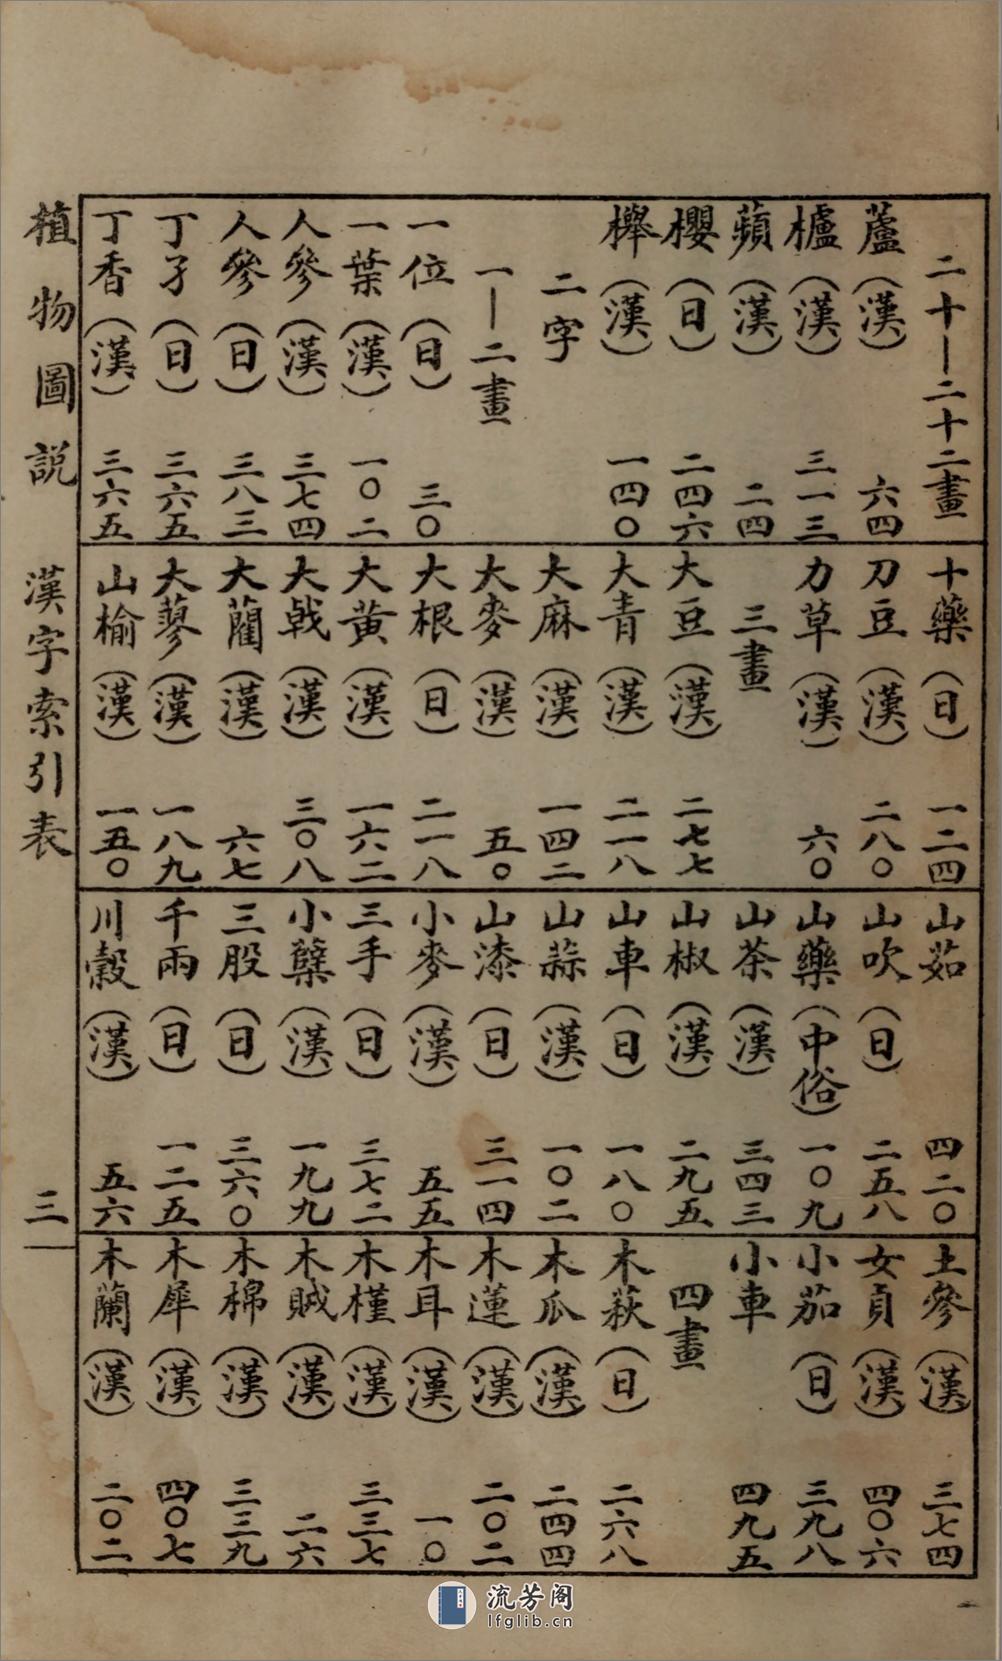 二十—二十二畫
蘆(漢) 六四
櫨(漢) 三一三
蘋(漢) 二四
櫻(日) 二四六
櫸(漢) 一四〇
二字
一—二畫
一位(日) 三〇
一葉(漢) 一〇二
人參(漢) 三七四
人參(日) 三八三
丁子(日) 三六五
丁香(漢) 三六五
十藥(日) 一二四
刀豆(漢) 二八〇
力草(漢) 六〇
三畫
大豆(漢) 二七七
大青(漢) 二一八
大麻(漢) 一四二
大麥(漢) 五〇
大根(日) 二一八
大黃(漢) 一六二
大戟(漢) 三〇八
大藺(漢) 六七
大蓼(漢) 一八九
山榆(漢) 一五〇
山茹 四二〇
山吹(日) 二五八
山藥(中俗) 一〇九
山茶(漢) 三四三
山椒(漢) 二九五
山車(日) 一八〇
山蒜(漢) 一〇二
山漆(日) 三一四
小麥(漢) 五五
三手(日) 三七二
小蘗(漢) 一九九
三股(日) 三六〇
千兩(日) 一二五
川穀(漢) 五六
土參(漢) 三七四
女貞(漢) 四〇六
小茄(日) 三九八
小車 四九五
四畫
木萩(日) 二六八
木瓜(漢) 二四四
木蓮(漢) 二〇二
木耳(漢) 一〇
木槿(漢) 三三七
木賊(漢) 二六
木棉(漢) 三三九
木犀(漢) 四〇七
木蘭(漢) 二〇二
植物圖說 漢字索引表 三
流芳阁
lfglib.cn